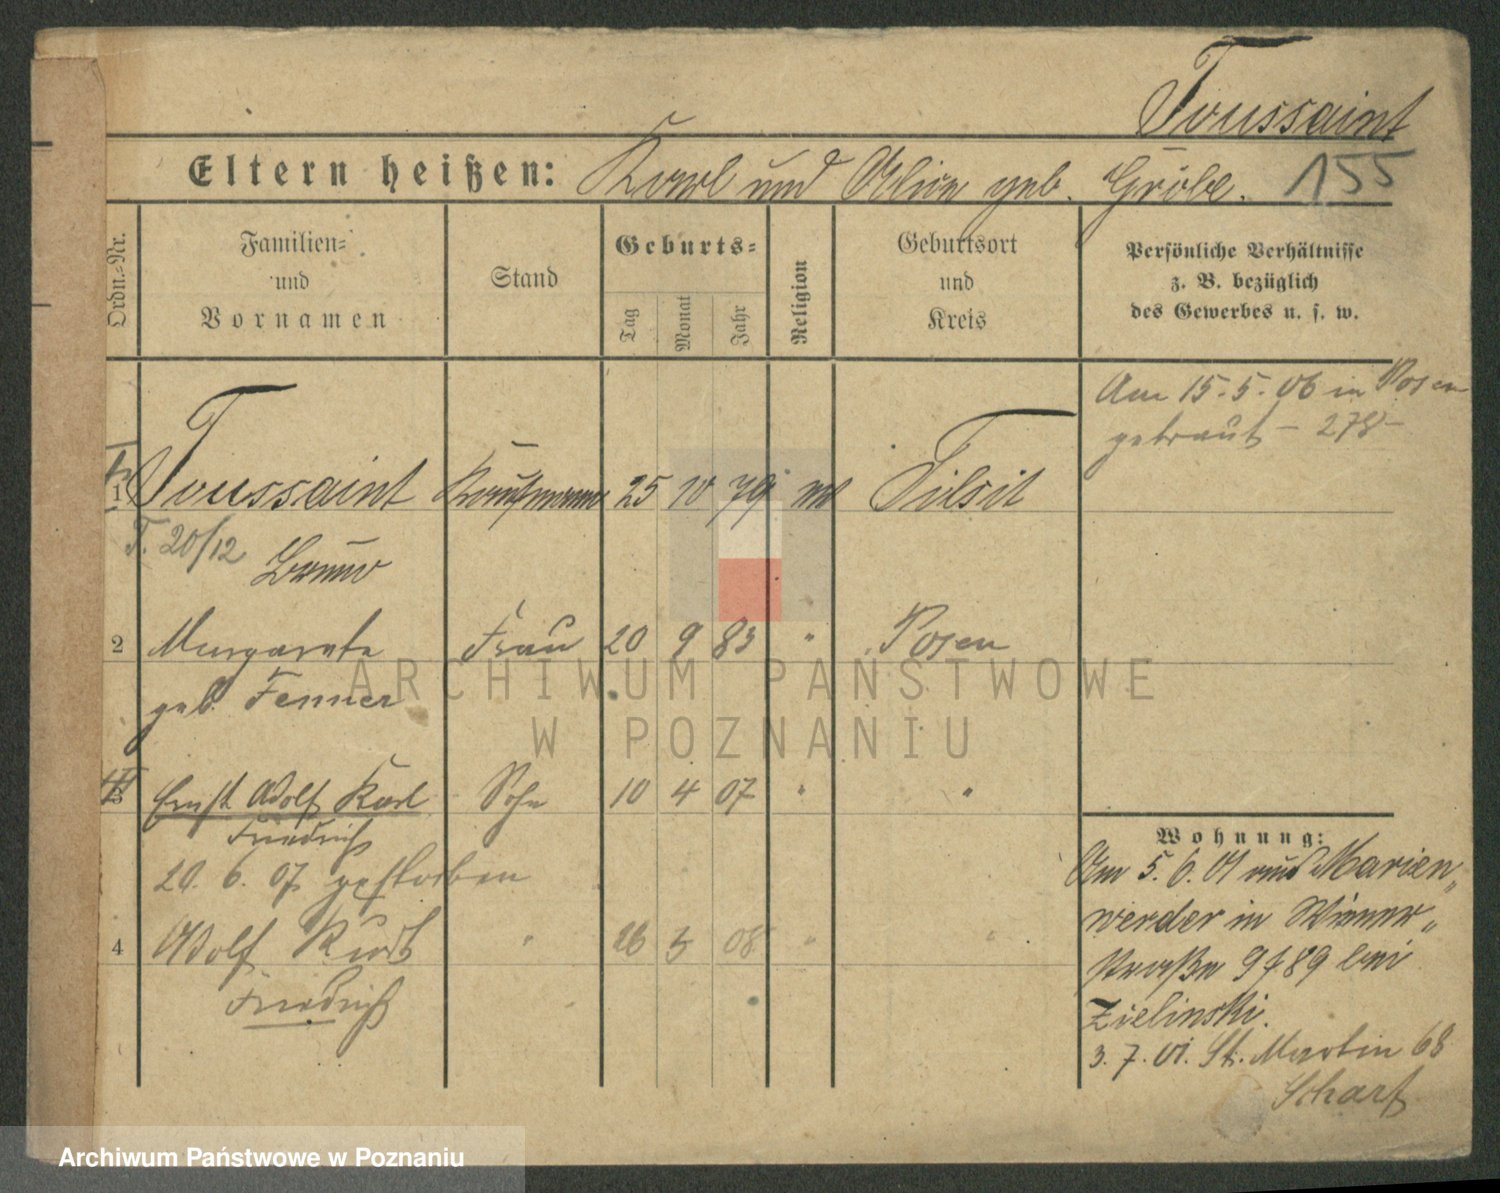 Toussaint
Eltern heißen: Karl und Alice geb. Gröbe.
155
Ordn.-Nr.
Familien-
und
Vornamen
Stand
Geburts-
Tag
Monat
Jahr
Religion
Geburtsort
und
Kreis
Persönliche Verhältnisse
z. B. bezüglich
des Gewerbes u. s. w.
Am 15.5.06 in Posen
getraut - 278 -
1 Toussaint Kaufmann 25 10 79 Tilsit
T. 20/12
Bruno
2 Margarete Frau 20 9 83 " Posen
geb. Fenner
3 Ernst Adolf Karl Sohn 10 4 07 " "
Friedrich
20. 6. 07 gestorben
4 Adolf Kurt " 26 5 08 "
Friedrich
Wohnung:
Am 5.6.01 aus Marien„
werder in Wiener„
straße 9 bei
Zielinski.
3. 7. 01. St. Martin 68
Scharf
ARCHIWUM PAŃSTWOWE
W POZNANIU
Archiwum Państwowe w Poznaniu